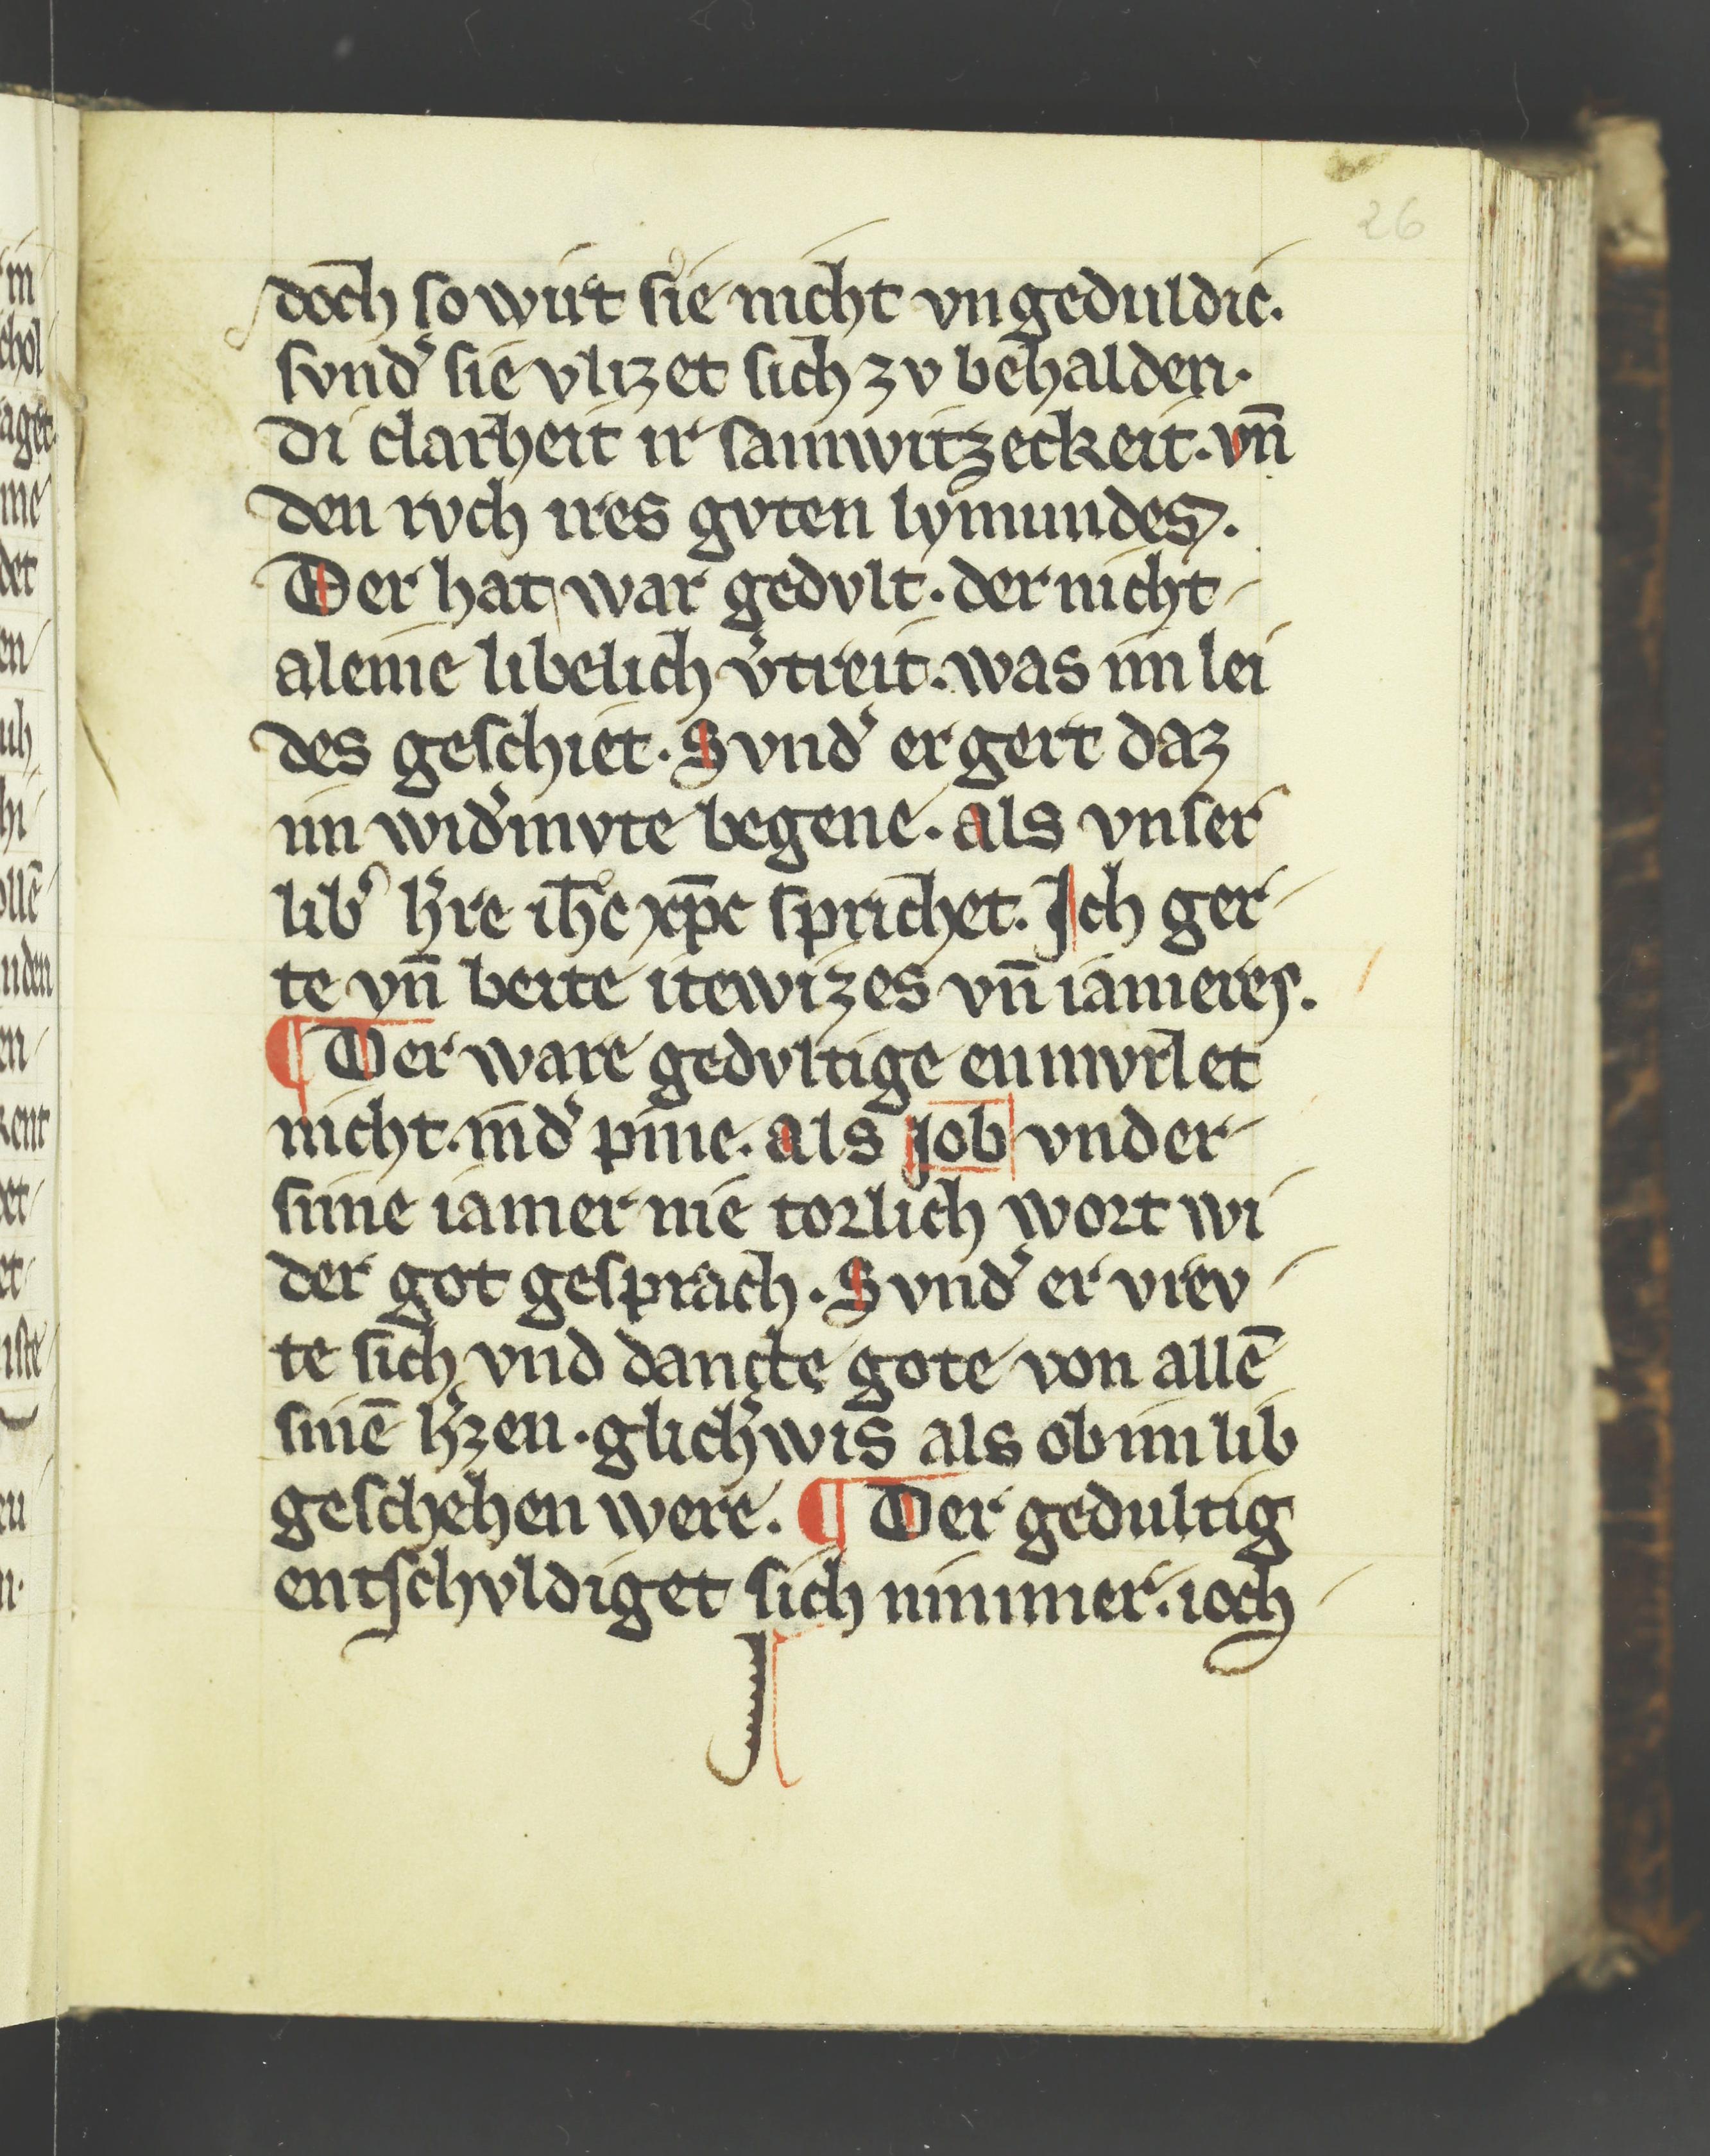 26
doch so wirt sie nicht vngeduldic.
svnd͛ sie vlizet sich zv behalden.
di clarheit ir samwitzeckeit. vn̄
den rvch ires gvten lymundes.
Der hat war gedvlt. der nicht
aleine libelich v͛treit. was im lei
des geschiet. Svnd͛ er gert daz
im wid͛mvte begene. als vnser
lib͛ h͛re ih̄c xp̄c sprichet. Ich ger
te vn̄ beite itewizes vn̄ iameres.
¶ Der ware gedvltige enmvrlet
nicht. in d͛ pine. als Job vnder
sime iamer nie torlich wort wi
der got gesprach. Svnd͛ er vrev
te sich vnd dancte gote von allē
sinē h͛zen. glich͛wis als ob im lib
geschehen were. ¶ Der gedultig
entschvldiget sich nimmer. ioch